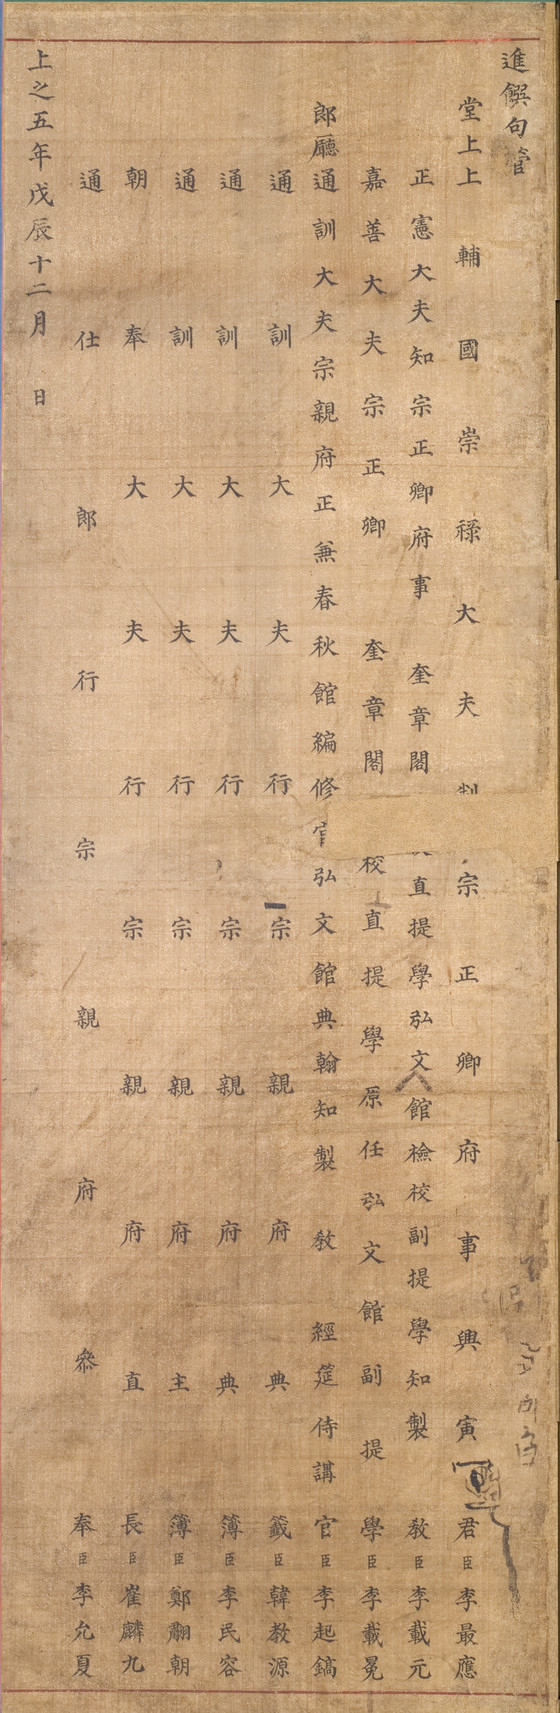 進饌句管
堂上上輔國崇祿大夫判宗正卿府事興寅君臣李最應
正憲大夫知宗正卿府事奎章閣直提學弘文館檢校副提學知製敎臣李載元
嘉善大夫宗正卿奎章閣校直提學原任弘文館副提學臣李載冕
郎廳通訓大夫宗親府正兼春秋館編修官弘文館典翰知製敎經筵侍講官臣李起鎬
通訓大夫行宗親府典籤臣韓教源
通訓大夫行宗親府典簿臣李民容
通訓大夫行宗親府主簿臣鄭翮朝
朝奉大夫行宗親府直長臣崔麟九
通仕郎行宗親府叅奉臣李允夏
上之五年戊辰十二月日